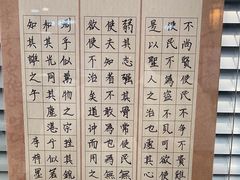 不尚賢使民不爭不貴難
使民不為盜不見可
是以聖人之治也虛其心
弱其志強其骨常使民無
欲使夫知不敢為無
不治矣道沖而用之
乎似萬物之宗挫其銳
和其光同其塵湛兮似
知其誰之子